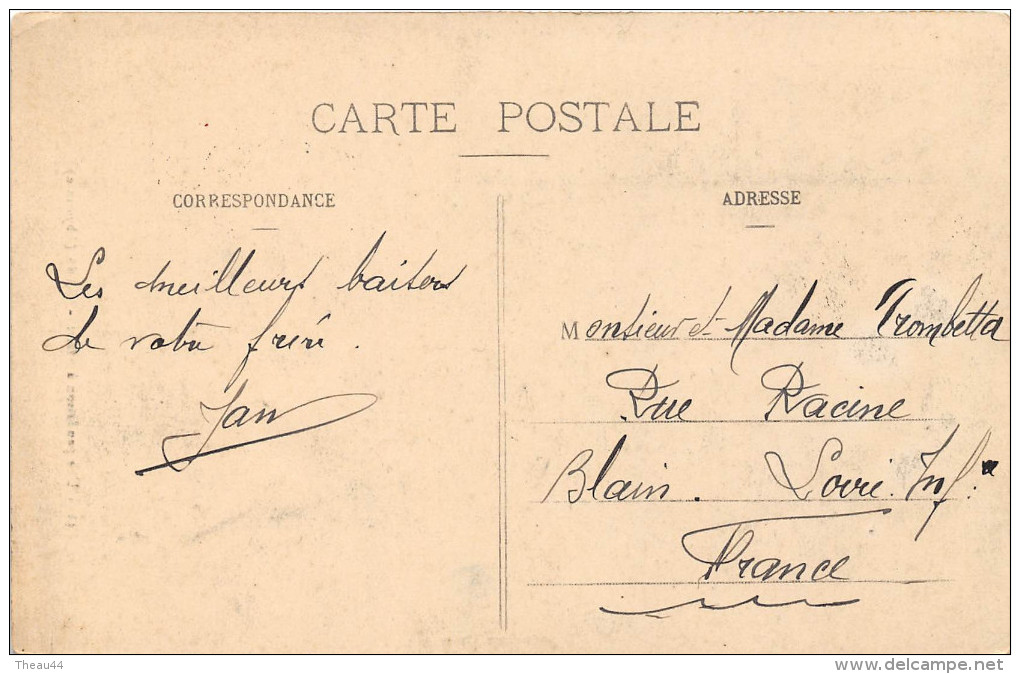 CARTE POSTALE
CORRESPONDANCE
ADRESSE
Les meilleurs baisers
de votre frère.
Jan
Monsieur et Madame Trombetta
Rue Racine
Blain. Loire. Inf.re
France
Theau44
www.delcampe.net